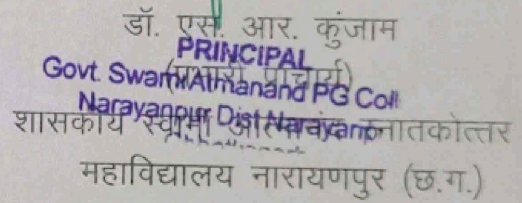 डॉ. एस. आर. कुंजाम
PRINCIPAL
(प्रभारी प्राचार्य)
Govt. Swami Atmanand PG Coll
Narayanpur Dist Narayanpur
शासकीय स्वामी आत्मानंद स्नातकोत्तर
महाविद्यालय नारायणपुर (छ.ग.)